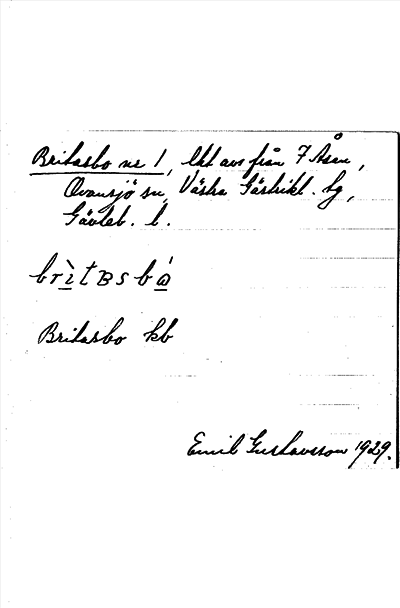 Britasbo nr 1, lht avs från 7 Åsen,
Ovansjö sn, Västra Gästrikl. tg,
Gävleb. l.
brìtʙsbó
Britasbo kb
Emil Gustavsson 1929.